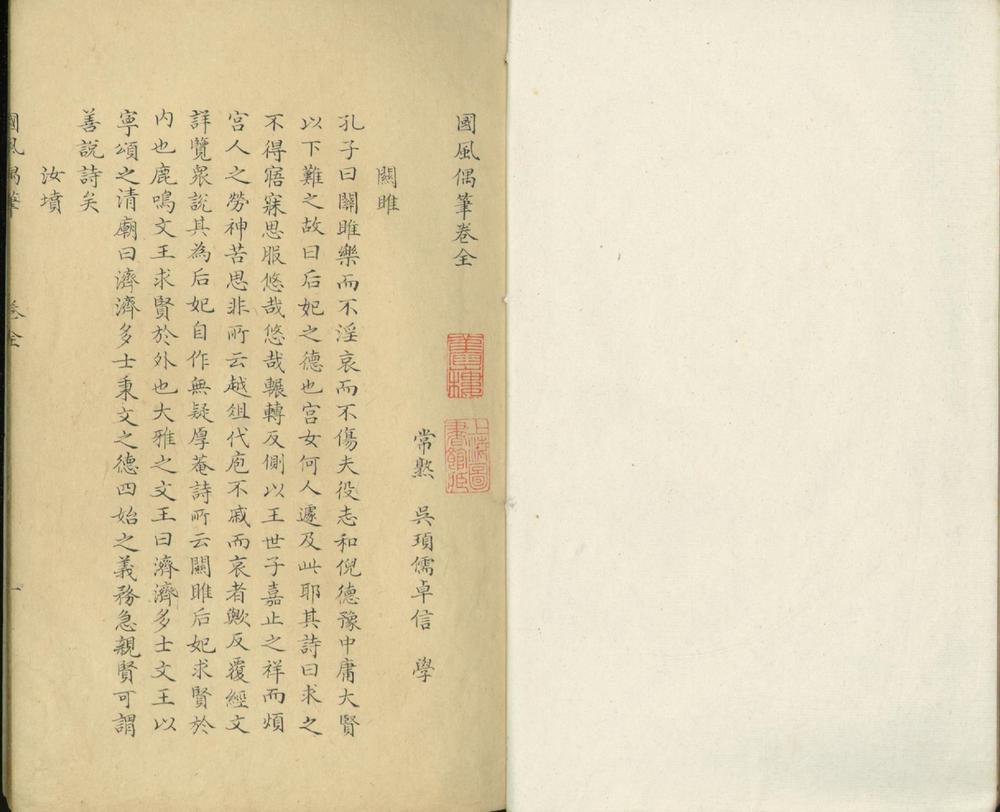 國風偶筆卷全
常熟 吳頊儒卓信 學
關雎
孔子曰關雎樂而不淫哀而不傷夫役志和倪德豫中庸大賢
以下難之故曰后妃之德也宮女何人遽及此耶其詩曰求之
不得寤寐思服悠哉悠哉輾轉反側以王世子嘉止之祥而煩
宮人之勞神苦思非所云越俎代庖不戚而哀者歟反覆經文
詳覽衆說其為后妃自作無疑厚菴詩所云關雎后妃求賢於
内也鹿鳴文王求賢於外也大雅之文王曰濟濟多士文王以
寧頌之清廟曰濟濟多士秉文之德四始之義務急親賢可謂
善說詩矣
汝墳
國風偶筆 卷全 一
上海圖書館藏